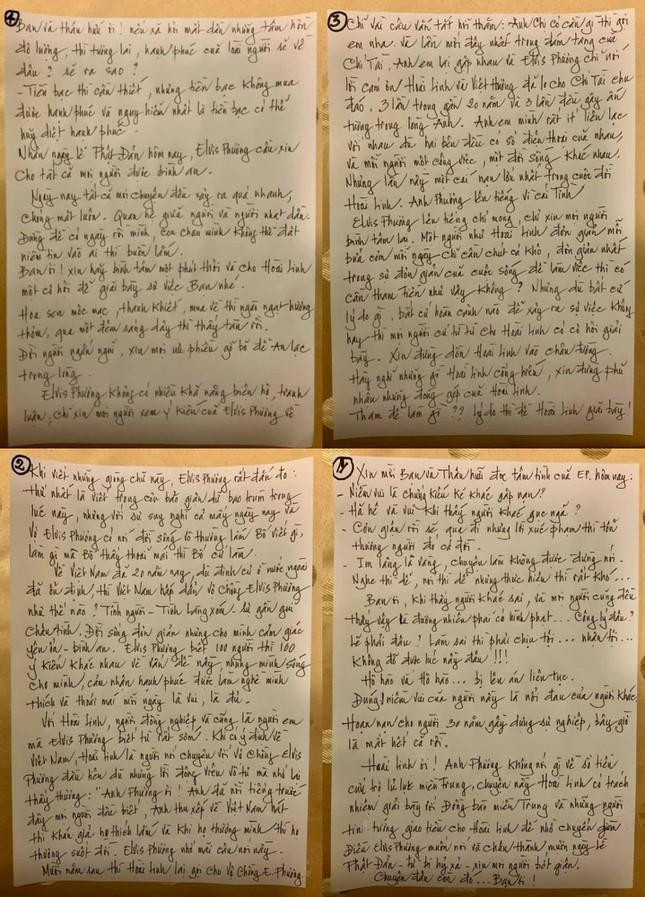 Bạn và thân hữu ơi! nếu xã hội mất dần những tâm hồn
độ lượng, thì tương lai, hạnh phúc của loài người sẽ về
đâu? sẽ ra sao?
- Tiền bạc thì cần thiết, nhưng tiền bạc không mua
được hạnh phúc và nguy hiểm nhất là tiền bạc có thể
hủy diệt hạnh phúc.
Nhân ngày lễ Phật Đản hôm nay, Elvis Phương cầu xin
cho tất cả mọi người được bình an.
Ngày nay tất cả mọi chuyện đều xảy ra quá nhanh,
chóng mặt luôn. Quan hệ giữa người và người nhạt dần.
Đừng để có ngày rồi mình con cháu mình không thể đặt
niềm tin vào ai thì buồn lắm.
Bạn ơi! xin hãy bình tâm một phút thôi và cho Hoài Linh
một cơ hội để giải bày sự việc Bạn nhé.
Hoa sen mộc mạc, thanh khiết, mùa về thì ngào ngạt hương
thơm, qua một đêm sáng dậy thì thấy tàn rồi.
Đời người ngắn ngủi, xin mọi ưu phiền gở bỏ để An lạc
trong lòng.
Elvis Phương không có nhiều khả năng biện hộ, tranh
luận, chỉ xin mọi người xem ý kiến của Elvis Phương về
3
Chỉ vài câu vắn tắt hỏi thăm: Anh Chị có cần gì thì gọi
em nha. Và lần mới đây nhất trong đám tang của
Chí Tài, Anh em lại gặp nhau và Elvis Phương chỉ nói
lời cám ơn Hoài Linh và Việt Hương đã lo cho Chí Tài chu
đáo. 3 lần trong gần 20 năm và 3 lần đều gây ấn
tượng trong lòng Anh. Anh em mình rất ít liên lạc
với nhau dù hai bên đều có số điện thoại của nhau,
và mỗi người một công việc, một đời sống khác nhau.
Nhưng lần này một cái nạn lớn nhất trong cuộc đời
Hoài Linh. Anh Phương lên tiếng vì cái Tình
Elvis Phương lên tiếng chỉ mong, chỉ xin mọi người
bình tâm lại. Một người như Hoài Linh đơn giản mỗi
bữa cơm mỗi ngày chỉ cần chút cá khô, đơn giản nhất
trong sự đơn giản của cuộc sống để làm việc thì có
cần tham tiền như vậy không? Nhưng dù bất cứ
lý do gì, bất cứ hoàn cảnh nào để xảy ra sự việc không
hay thì mọi người cứ từ từ cho Hoài Linh có cơ hội giải
bày. Xin đừng dồn Hoài Linh vào chân tường.
Hãy nghĩ những gì Hoài Linh cống hiến, xin đừng phủ
nhận những đóng góp của Hoài Linh.
Tham để làm gì?? Lý do thì để Hoài Linh giải bày!
2
Khi viết những giòng chữ này, Elvis Phương rất đắn đo:
thứ nhất là viết trong cơn bão giận dữ bao trùm trong
lúc này, nhưng với sự suy nghĩ cả mấy ngày nay và
Vợ Elvis Phương có nói đời sống vô thường lắm Bố viết gì,
làm gì mà Bố thấy thoải mái thì Bố cứ làm.
Về Việt Nam đã 20 năm nay, dù định cư ở nước ngoài
đã ổn định, thì Việt Nam hấp dẫn vợ chồng Elvis Phương
như thế nào? Tình người - Tình làng xóm. Sự gần gũi
chân tình. Đời sống đơn giản nhưng cho mình cảm giác
yên ổn - bình an. Elvis Phương biết 100 người thì 100
ý kiến khác nhau về vấn đề này, nhưng mình sống
cho mình, cảm nhận hạnh phúc được làm nghề mình
thích và thoải mái mỗi ngày là vui, là đủ.
Với Hoài Linh, người đồng nghiệp và cũng là người em
mà Elvis Phương biết từ rất sớm. Khi có ý định về
Việt Nam, Hoài Linh là người nói chuyện với vợ chồng Elvis
Phương đầu tiên dù những lời động viên vô tư mà nhớ lại
thấy thương: "Anh Phương ơi! Anh đã nổi tiếng trước
đây mọi người đều biết, Anh thu xếp về Việt Nam hát
thì khán giả họ thích lắm và khi họ thương mình thì họ
thương suốt đời. Elvis Phương nhớ mãi câu nói này.
Mười năm sau thì Hoài Linh lại gọi cho vợ chồng E. Phương
Xin mời Bạn và Thân hữu đọc tâm tình của EP. hôm nay:
- Niềm vui là chứng kiến kẻ khác gặp nạn?
- Hả hê và vui khi thấy người khác gục ngã?
- Cơn giận rồi sẽ qua đi nhưng lời xúc phạm thì tổn
thương người đó cả đời.
- Im lặng là vàng, chuyện làm không được đừng nói.
Nghe thì dễ, nói thì dễ nhưng thực hiện thì rất khó...
Bạn ơi, khi thấy người khác sai, và mọi người cũng đều
thấy vậy là đương nhiên phải có hình phạt... Công lý đâu?
Lẽ phải đâu? Làm sai thì phải chịu tội... nhận tội...
Không đỡ được lúc này đâu!!!
Hồ hào và Hồ hào... bị lên án liên tục.
Đúng! niềm vui của người này là nỗi đau của người khác,
Hoạn nạn cho người 30 năm gây dựng sự nghiệp, bây giờ
là mất hết cả rồi.
Hoài Linh ơi! Anh Phương không nói gì về số tiền
cứu trợ lũ lụt miền Trung, chuyện này Hoài Linh có trách
nhiệm giải bày với Đồng bào miền Trung và những người
tin tưởng giao tiền cho Hoài Linh để nhờ chuyển dùm
Điều Elvis Phương muốn nói và chân thành, mười ngày lễ
Phật Đản - từ bi hỷ xả - xin mọi người bớt giận.
Chuyện đâu còn đó... Bạn ơi!